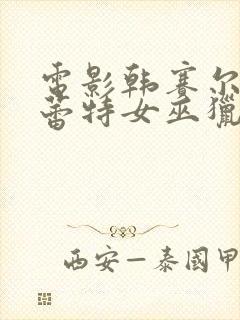 電影韩赛尔
蕾特女巫獵
西安—泰國甲